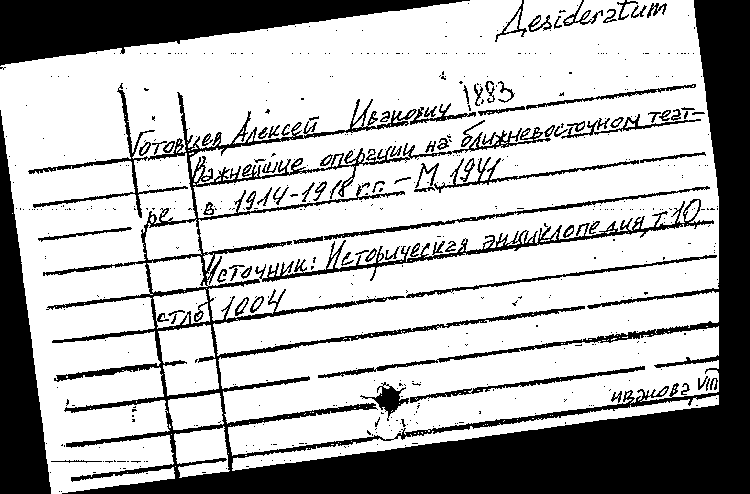 Desideratum
Готовцев Алексей Иванович 1883
Важнейшие операции на ближневосточном театре
ре в 1914-1918 г.г. – М., 1941
Источник: Историческая энциклопедия, т. 10,
стлб 1004
Иванова VIII